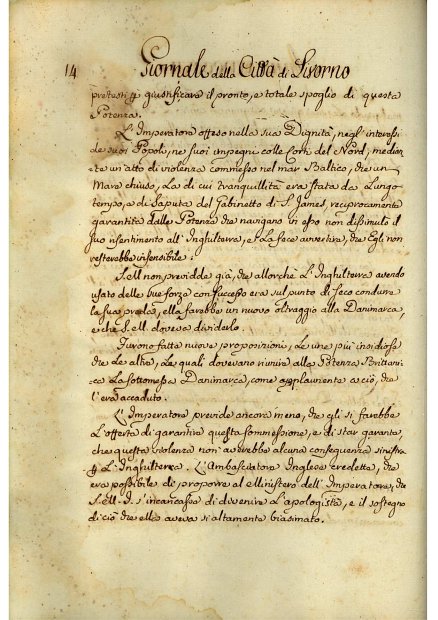 14 Giornale della Città di Livorno
pretesti p giustificare il pronto, e totale spoglio di questa
Potenza.
L'Imperatore offeso nella sua Dignità, negl'interessi
de suoi Popoli, ne suoi impegni colle Corti del Nord, median
te un'atto di violenza commesso nel mar Baltico, che un
Mare chiuso, La di cui tranquillità era stata da Lungo
tempo, e di Saputa del Gabinetto di S. James, reciprocamente
garantita dalle Potenze che navigano in esso non dissimulò il
suo risentimento all'Inghilterra, e La fece avvertire, che Egli non
resterebbe insensibile.
S. M. non previdde già, che allorchè L'Inghilterra avendo
usato delle sue forze con successo era sul punto di seco condurre
la sua preda, ella farebbe un nuovo oltraggio alla Danimarca,
e che S. M. doveva dividerlo.
Furono fatte nuove proposizioni, Le une più insidiose
che Le altre, Le quali dovevano riunire alla Potenza Brittani-
ca La sottomessa Danimarca, come applaudente a ciò, che
l'era accaduto.
L'Imperatore previde ancora meno, che gli si farebbe
L'offerta di garantire questa sommessione, e di star garante,
che questa violenza non averebbe alcuna conseguenza sinistra
p L'Inghilterra. L'Ambasciatore Inglese credette, che
era possibile di proporre al Ministero dell'Imperatore, che
S. M. I. s'incaricasse di divenire L'apologista, e il sostegno
di ciò che ella aveva sì altamente biasimato.